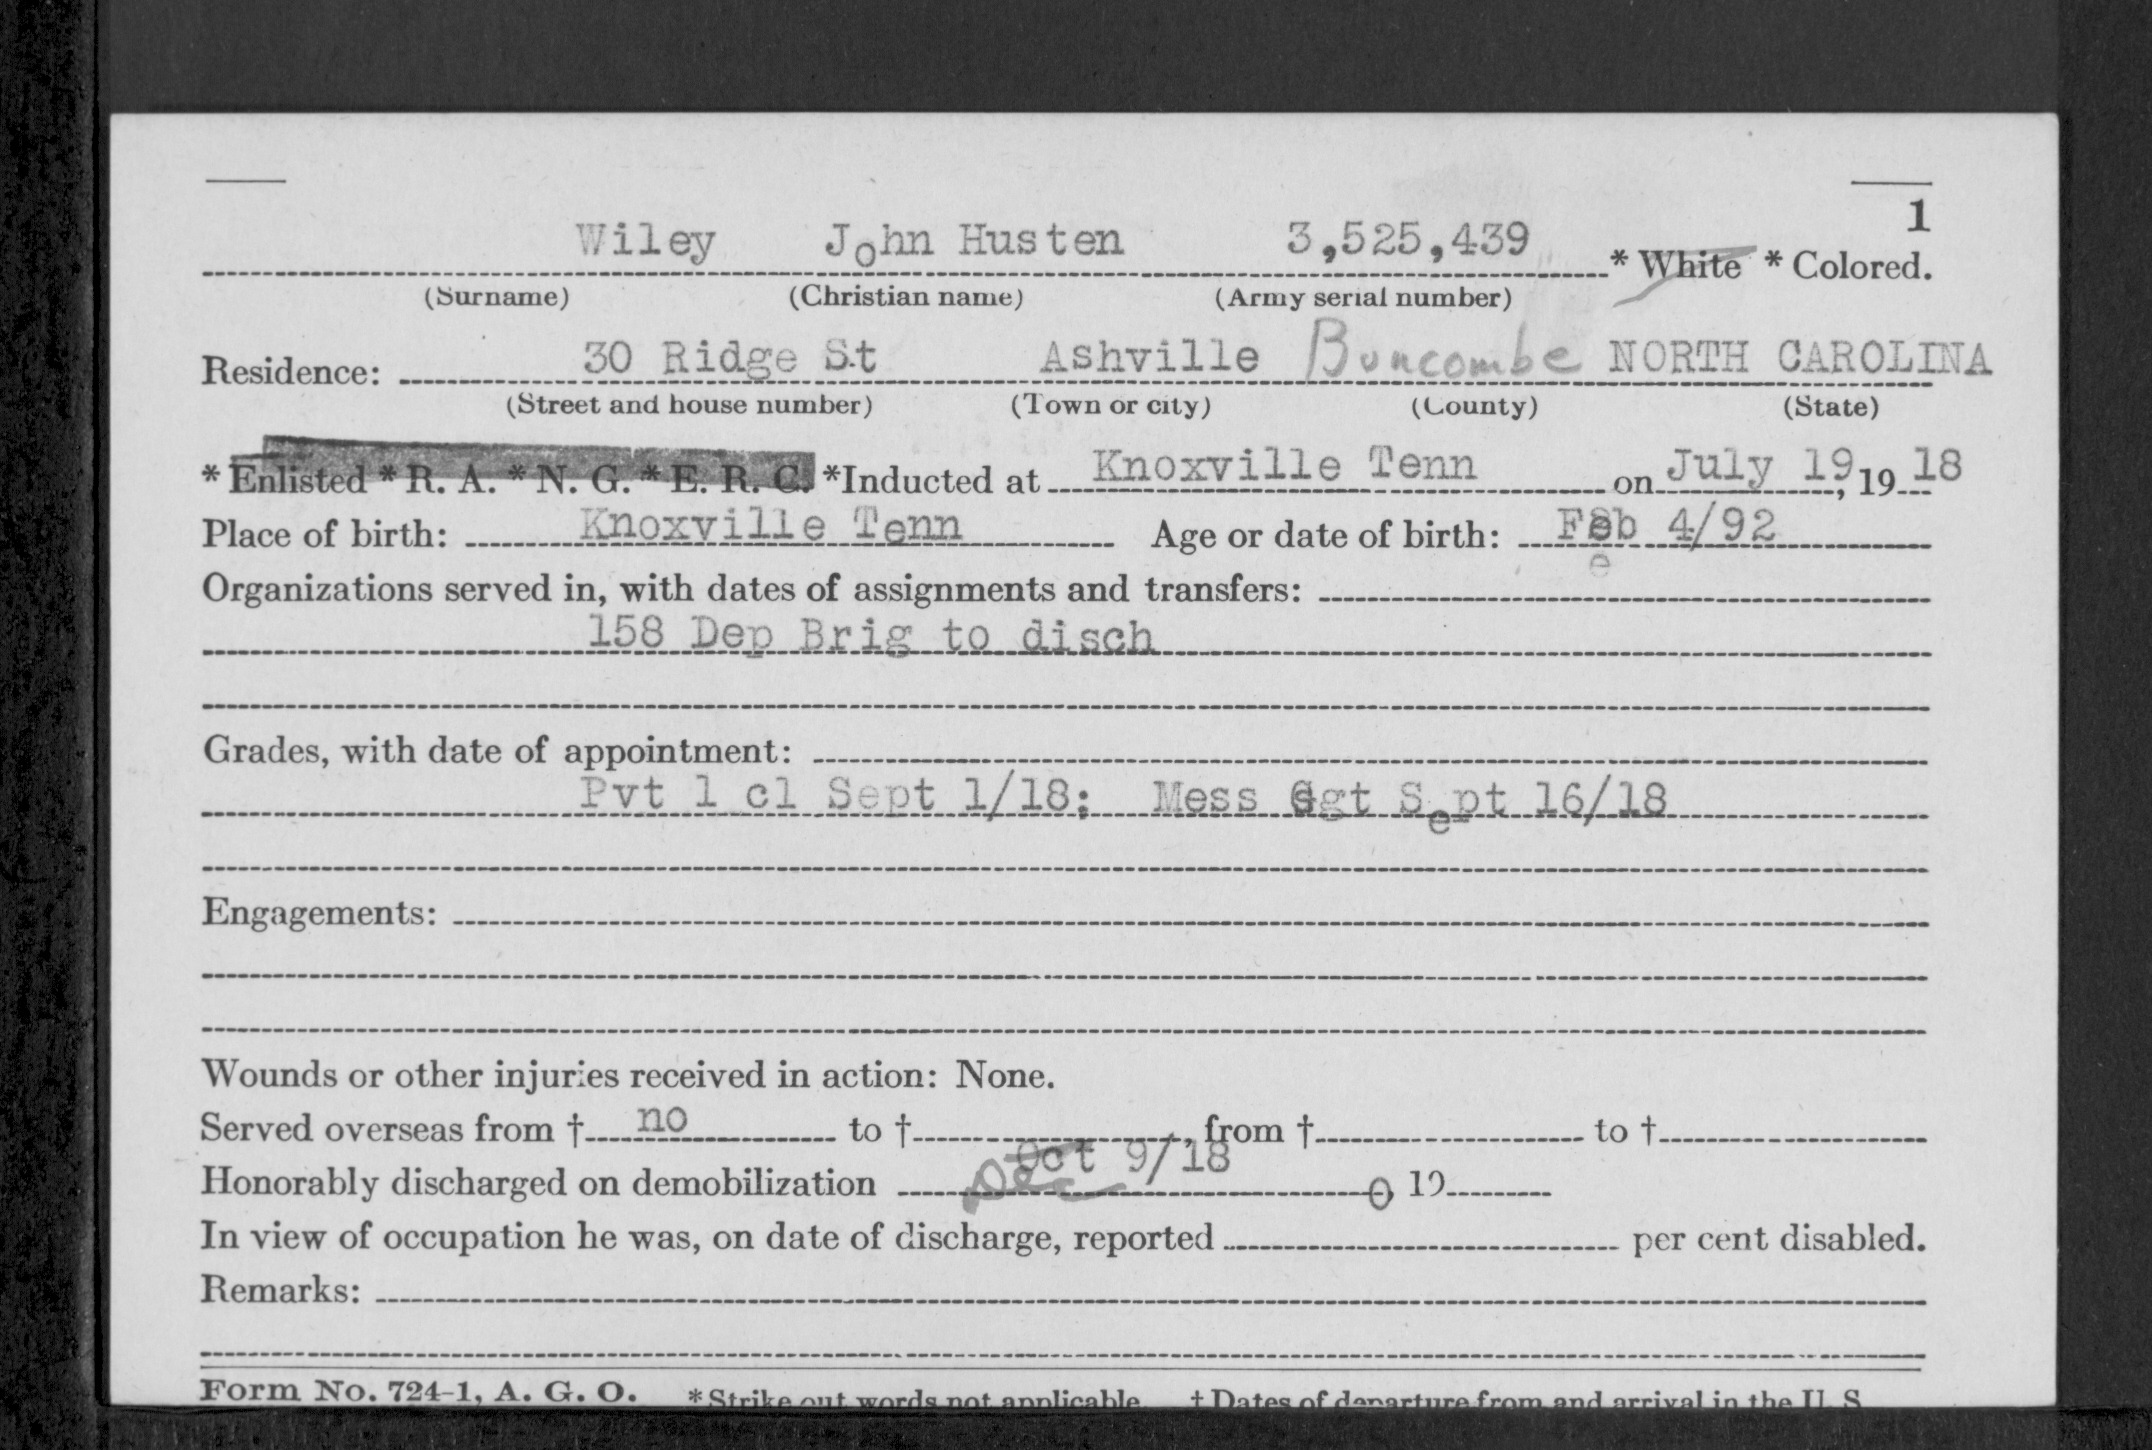 1
Wiley John Husten 3,525,439 * White * Colored.
(Surname) (Christian name) (Army serial number)
Residence: 30 Ridge St Ashville Buncombe NORTH CAROLINA
(Street and house number) (Town or city) (County) (State)
* Enlisted * R. A. * N. G. * E. R. C. *Inducted at Knoxville Tenn on July 19, 19 18
Place of birth: Knoxville Tenn Age or date of birth: Feb 4/92
e
Organizations served in, with dates of assignments and transfers:
158 Dep Brig to disch
Grades, with date of appointment:
Pvt 1 cl Sept 1/18; Mess Sgt Sept 16/18
Engagements:
Wounds or other injuries received in action: None.
Served overseas from † no to †, from † to †
Oct 9/18
Honorably discharged on demobilization Dec 0, 19
In view of occupation he was, on date of discharge, reported per cent disabled.
Remarks:
Form No. 724-1, A. G. O. * Strike out words not applicable. † Dates of departure from and arrival in the U. S.